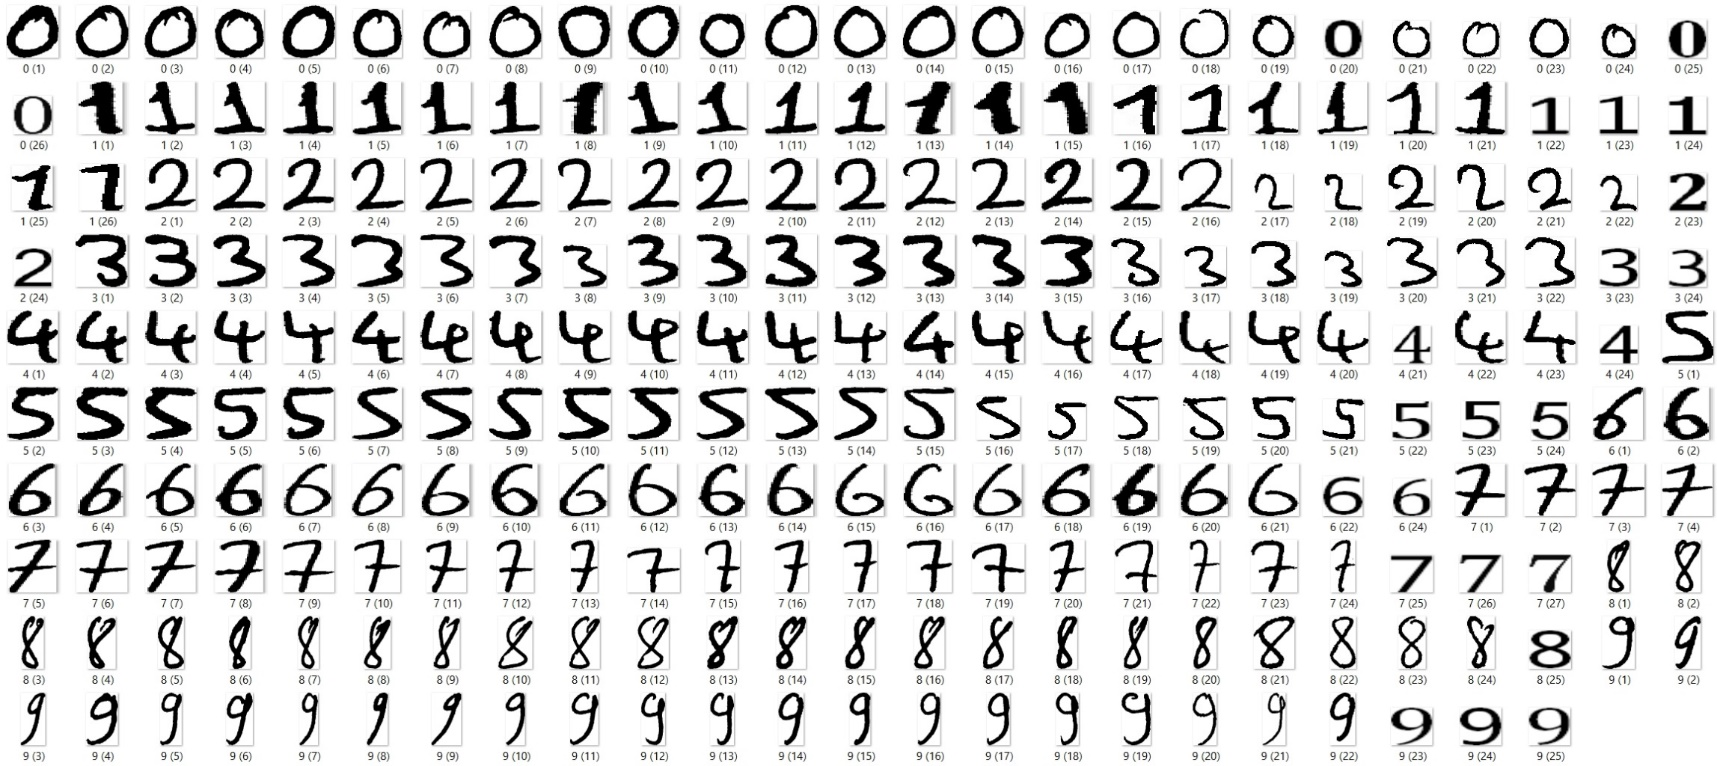 0 0 0 0 0 0 0 0 0 0 0 0 0 0 0 0 0 0 0 0 0 0 0 0 0
0 (1) 0 (2) 0 (3) 0 (4) 0 (5) 0 (6) 0 (7) 0 (8) 0 (9) 0 (10) 0 (11) 0 (12) 0 (13) 0 (14) 0 (15) 0 (16) 0 (17) 0 (18) 0 (19) 0 (20) 0 (21) 0 (22) 0 (23) 0 (24) 0 (25)
0 1 1 1 1 1 1 1 1 1 1 1 1 1 1 1 1 1 1 1 1 1 1 1 1
0 (26) 1 (1) 1 (2) 1 (3) 1 (4) 1 (5) 1 (6) 1 (7) 1 (8) 1 (9) 1 (10) 1 (11) 1 (12) 1 (13) 1 (14) 1 (15) 1 (16) 1 (17) 1 (18) 1 (19) 1 (20) 1 (21) 1 (22) 1 (23) 1 (24)
1 1 2 2 2 2 2 2 2 2 2 2 2 2 2 2 2 2 2 2 2 2 2 2 2
1 (25) 1 (26) 2 (1) 2 (2) 2 (3) 2 (4) 2 (5) 2 (6) 2 (7) 2 (8) 2 (9) 2 (10) 2 (11) 2 (12) 2 (13) 2 (14) 2 (15) 2 (16) 2 (17) 2 (18) 2 (19) 2 (20) 2 (21) 2 (22) 2 (23)
2 3 3 3 3 3 3 3 3 3 3 3 3 3 3 3 3 3 3 3 3 3 3 3 3
2 (24) 3 (1) 3 (2) 3 (3) 3 (4) 3 (5) 3 (6) 3 (7) 3 (8) 3 (9) 3 (10) 3 (11) 3 (12) 3 (13) 3 (14) 3 (15) 3 (16) 3 (17) 3 (18) 3 (19) 3 (20) 3 (21) 3 (22) 3 (23) 3 (24)
4 4 4 4 4 4 4 4 4 4 4 4 4 4 4 4 4 4 4 4 4 4 4 4 5
4 (1) 4 (2) 4 (3) 4 (4) 4 (5) 4 (6) 4 (7) 4 (8) 4 (9) 4 (10) 4 (11) 4 (12) 4 (13) 4 (14) 4 (15) 4 (16) 4 (17) 4 (18) 4 (19) 4 (20) 4 (21) 4 (22) 4 (23) 4 (24) 5 (1)
5 5 5 5 5 5 5 5 5 5 5 5 5 5 5 5 5 5 5 5 5 5 5 6 6
5 (2) 5 (3) 5 (4) 5 (5) 5 (6) 5 (7) 5 (8) 5 (9) 5 (10) 5 (11) 5 (12) 5 (13) 5 (14) 5 (15) 5 (16) 5 (17) 5 (18) 5 (19) 5 (20) 5 (21) 5 (22) 5 (23) 5 (24) 6 (1) 6 (2)
6 6 6 6 6 6 6 6 6 6 6 6 6 6 6 6 6 6 6 6 6 7 7 7 7
6 (3) 6 (4) 6 (5) 6 (6) 6 (7) 6 (8) 6 (9) 6 (10) 6 (11) 6 (12) 6 (13) 6 (14) 6 (15) 6 (16) 6 (17) 6 (18) 6 (19) 6 (20) 6 (21) 6 (22) 6 (24) 7 (1) 7 (2) 7 (3) 7 (4)
7 7 7 7 7 7 7 7 7 7 7 7 7 7 7 7 7 7 7 7 7 7 7 8 8
7 (5) 7 (6) 7 (7) 7 (8) 7 (9) 7 (10) 7 (11) 7 (12) 7 (13) 7 (14) 7 (15) 7 (16) 7 (17) 7 (18) 7 (19) 7 (20) 7 (21) 7 (22) 7 (23) 7 (24) 7 (25) 7 (26) 7 (27) 8 (1) 8 (2)
8 8 8 8 8 8 8 8 8 8 8 8 8 8 8 8 8 8 8 8 8 8 8 9 9
8 (3) 8 (4) 8 (5) 8 (6) 8 (7) 8 (8) 8 (9) 8 (10) 8 (11) 8 (12) 8 (13) 8 (14) 8 (15) 8 (16) 8 (17) 8 (18) 8 (19) 8 (20) 8 (21) 8 (22) 8 (23) 8 (24) 8 (25) 9 (1) 9 (2)
9 9 9 9 9 9 9 9 9 9 9 9 9 9 9 9 9 9 9 9 9 9 9
9 (3) 9 (4) 9 (5) 9 (6) 9 (7) 9 (8) 9 (9) 9 (10) 9 (11) 9 (12) 9 (13) 9 (14) 9 (15) 9 (16) 9 (17) 9 (18) 9 (19) 9 (20) 9 (21) 9 (22) 9 (23) 9 (24) 9 (25)